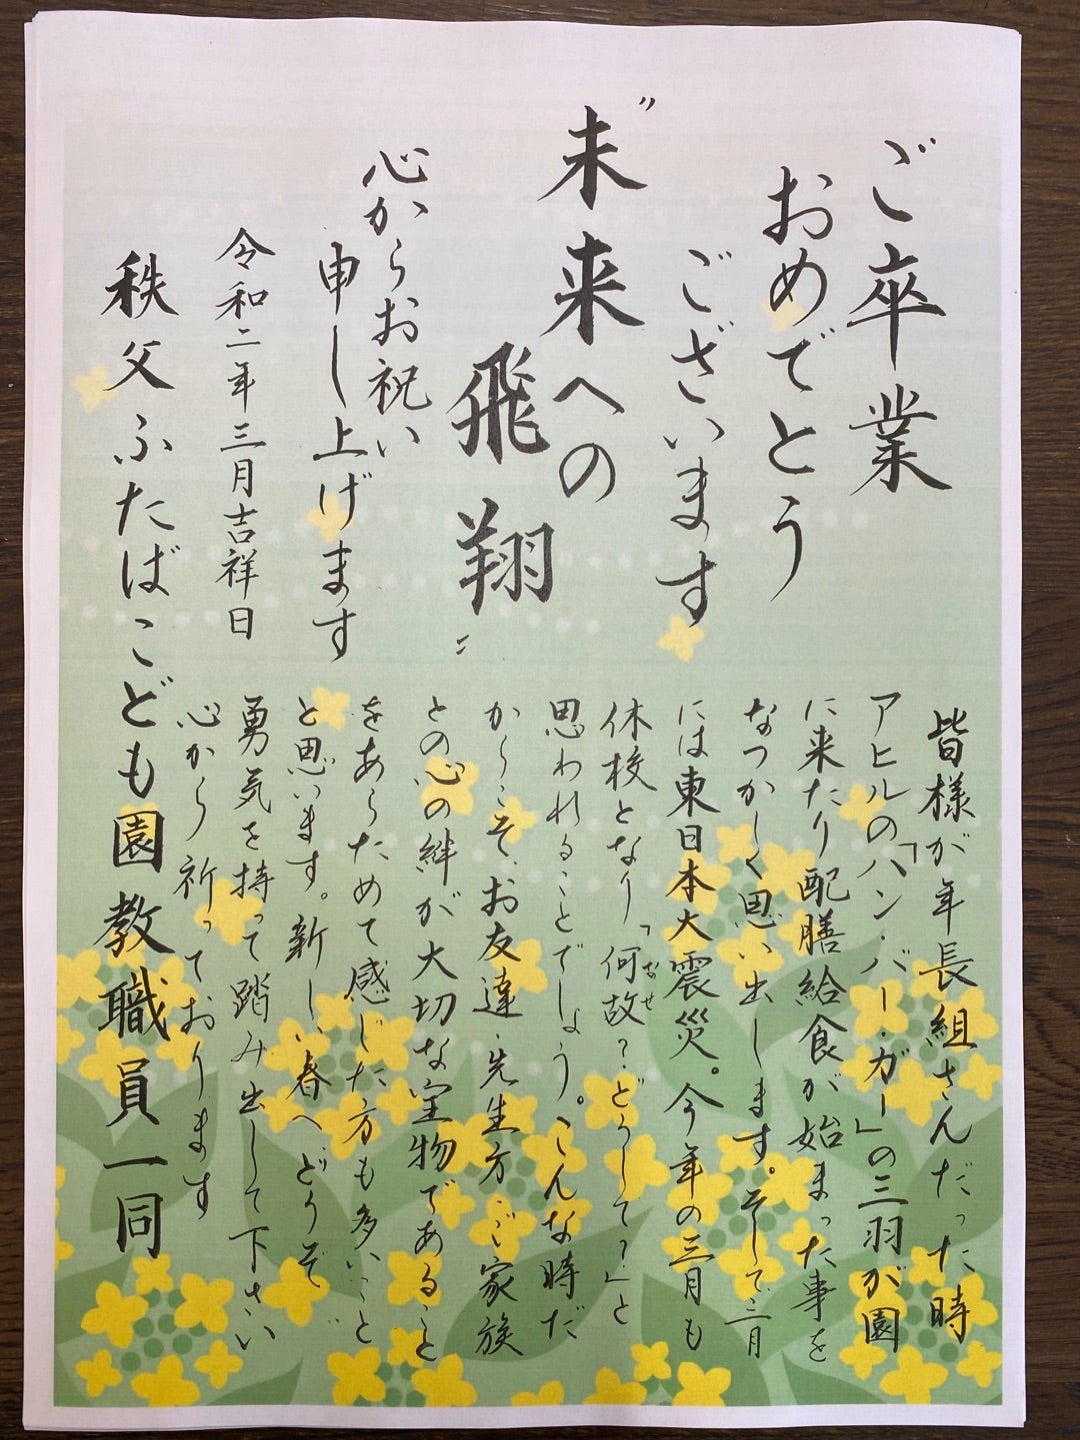 ご卒業
おめでとう
ございます
〝未来への
飛翔〟
心からお祝い
申し上げます
皆様が年長組さんだった時
アヒルの「ハン・バー・ガー」の三羽が園
に来たり配膳給食が始まった事を
なつかしく思い出します。そして三月
には東日本大震災。今年の三月も
休校となり「何故？どうして？」と
なぜ
思われることでしょう。こんな時だ
からこそ、お友達・先生方・ご家族
との心の絆が大切な宝物であること
をあらためて感じた方も多いこと
と思います。新しい春へ、どうぞ
勇気を持って踏み出して下さい
心から祈っております
令和二年三月吉祥日
秩父ふたばこども園教職員一同